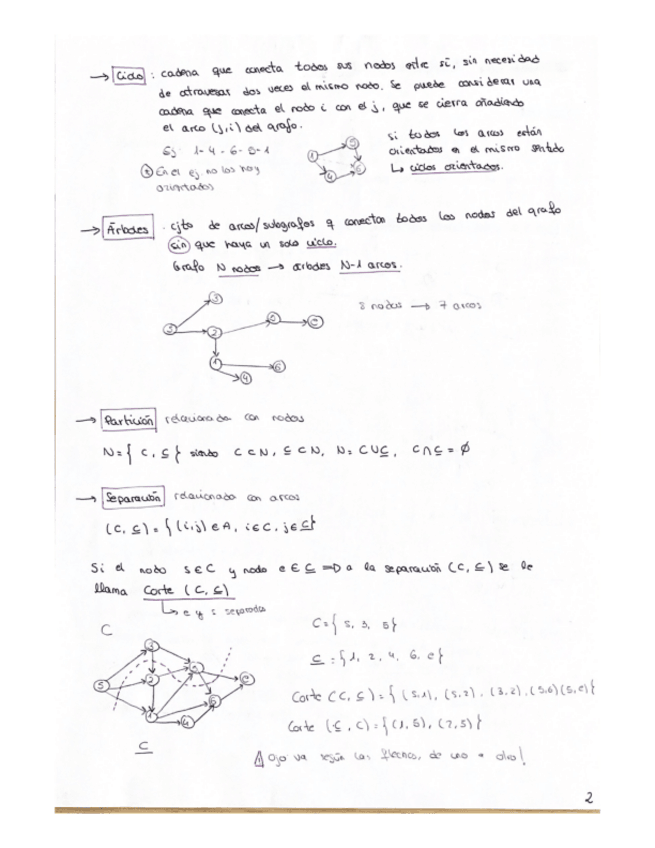 → Ciclo : cadena que conecta todos sus nodos entre sí, sin necesidad
de atravesar dos veces el mismo nodo. Se puede considerar una
cadena que conecta el nodo i con el j, que se cierra añadiendo
el arco (j,i) del grafo.
Ej 1-4-6-5-1
En el ej. no los hay
orientados
1 5 4 6
si todos los arcos están
orientados en el mismo sentido
↳ ciclos orientados.
→ Árboles : cjto de arcos/subgrafos q conectan todos los nodos del grafo
sin que haya un solo ciclo.
Grafo N nodos → árboles N-1 arcos.
3
S 2 5 e
1 6
4
8 nodos → 7 arcos
→ Partición relacionada con nodos
N = { C, C̲ } siendo C ⊂ N, C̲ ⊂ N, N = C ∪ C̲, C ∩ C̲ = Ø
→ Separación relacionado con arcos
(C, C̲) = { (i,j) ∈ A, i ∈ C, j ∈ C̲ }
Si el nodo s ∈ C y nodo e ∈ C̲ ⇒ a la separación (C, C̲) se le
llama Corte (C, C̲)
↳ e y s separados
C
3
S 2 5 e
1 4 6
C̲
C = { S, 3, 5 }
C̲ = { 1, 2, 4, 6, e }
Corte (C, C̲) = { (S,1), (S,2), (3,2), (5,6) (5,e) }
Corte (C̲, C) = { (1,5), (2,5) }
Ojo va según las flechas, de uno a otro!
2